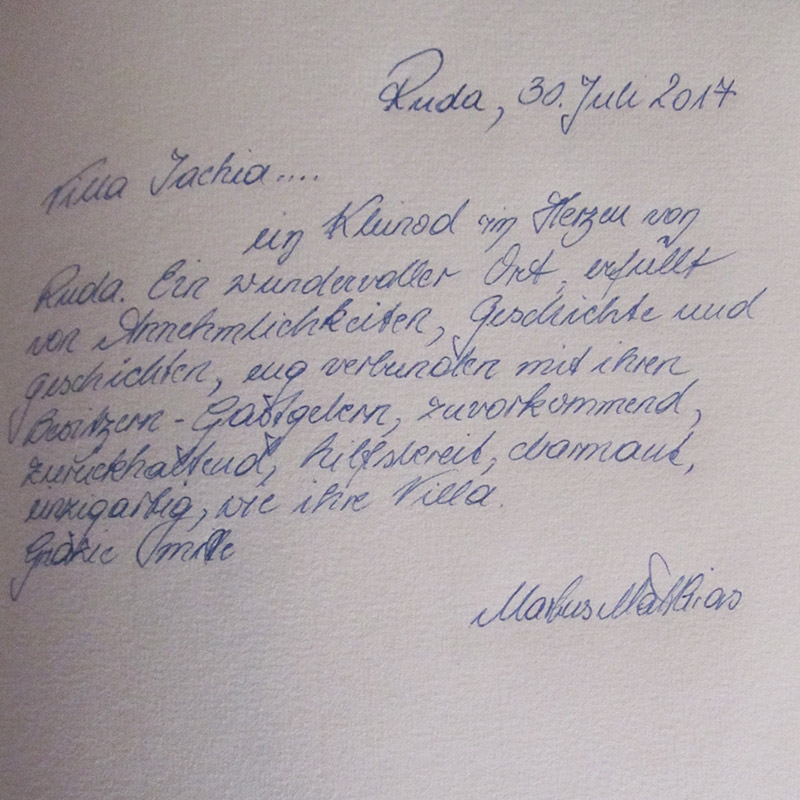 Ruda, 30. Juli 2017
Villa Iachia....
ein Kleinod im Herzen von
Ruda. Ein wundervoller Ort, erfüllt
von Annehmlichkeiten, Geschichte und
Geschichten, eng verbunden mit ihren
Besitzern - Gastgebern, zuvorkommend,
zurückhaltend, hilfsbereit, charmant,
einzigartig, wie ihre Villa.
Grazie mille
Markus Mathias